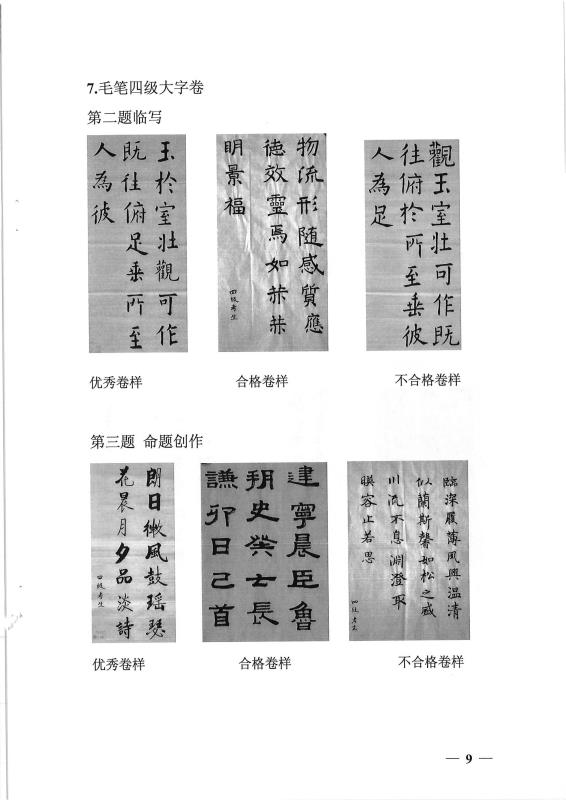 7.毛笔四级大字卷
第二题临写
玉於室壮觀可作
既往俯足垂所至
人為彼
物流形随感質應
徳效靈焉如茶茶
明景福
四级考生
觀玉室壮可作既
往俯於所至垂彼
人為足
优秀卷样
合格卷样
不合格卷样
第三题 命题创作
朗日微風鼓瑶瑟
花晨月夕品淡詩
四级考生
建寧晨臣魯
朔史癸士長
謙卯日己首
臨深履薄夙興温清
似蘭斯馨如松之盛
川流不息淵澄取
暎容止若思
四级考生
优秀卷样
合格卷样
不合格卷样
— 9 —